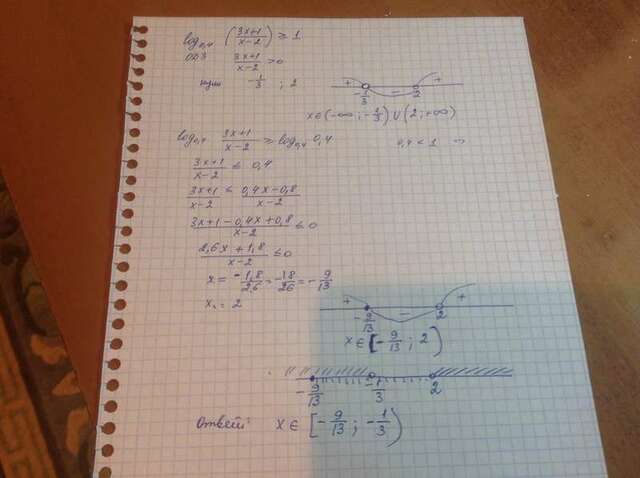 log₀,₄ (3x+1)/(x-2) ≥ 1
ОДЗ (3x+1)/(x-2) > 0
нули -1/3 ; 2
+ - +
-1/3 2
x∈(-∞; -1/3) ∪ (2; +∞)
log₀,₄ (3x+1)/(x-2) ≥ log₀,₄ 0,4 0,4 < 1 ⇒
(3x+1)/(x-2) ≤ 0,4
(3x+1)/(x-2) ≤ (0,4x-0,8)/(x-2)
(3x+1-0,4x+0,8)/(x-2) ≤ 0
(2,6x+1,8)/(x-2) ≤ 0
x = -1,8/2,6 = -18/26 = -9/13
x₂ = 2
+ - +
-9/13 2
x∈[-9/13 ; 2)
-9/13 -1/3 2
Ответ: x∈[-9/13 ; -1/3)